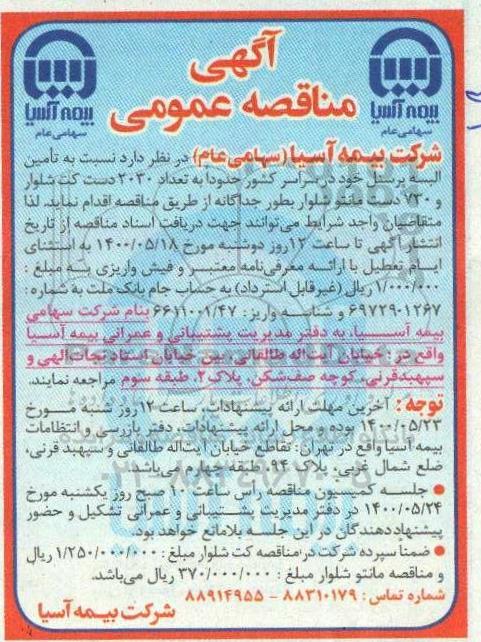 آگهی
مناقصه عمومی
بیمه آسیا
سهامی عام
بیمه آسیا
سهامی عام
شرکت بیمه آسیا (سهامی عام) در نظر دارد نسبت به تأمین
البسه پرسنل خود در سراسر کشور حدودا به تعداد ۲۰۳۰ دست کت شلوار
و ۷۳۰ دست مانتو شلوار بطور جداگانه از طریق مناقصه اقدام نماید. لذا
متقاضیان واجد شرایط می‌توانند جهت دریافت اسناد مناقصه از تاریخ
انتشار آگهی تا ساعت ۱۲ روز دوشنبه مورخ ۱۴۰۰/۰۵/۱۸ به استثنای
ایام تعطیل با ارائه معرفی‌نامه معتبر و فیش واریزی به مبلغ :
۱/۰۰۰/۰۰۰ ریال (غیر قابل استرداد) به حساب جام بانک ملت به شماره :
۶۹۷۲۹۰۱۲۶۷ و شناسه واریز: ۶۶۱۱۰۰۱/۴۷ بنام شرکت سهامی
بیمه آسیا، به دفتر مدیریت پشتیبانی و عمرانی بیمه آسیا
واقع در : خیابان آیت‌اله طالقانی، بین خیابان استاد نجات‌الهی و
سپهبد قرنی، کوچه صف‌شکن، پلاک ۲، طبقه سوم مراجعه نمایند.
توجه : آخرین مهلت ارائه پیشنهادات، ساعت ۱۲ روز شنبه مورخ
۱۴۰۰/۰۵/۲۳ بوده و محل ارائه پیشنهادات، دفتر بازرسی و انتظامات
بیمه آسیا واقع در تهران: تقاطع خیابان آیت‌اله طالقانی و سپهبد قرنی،
ضلع شمال غربی، پلاک ۹۴، طبقه چهارم می‌باشد.
● جلسه کمیسیون مناقصه راس ساعت ۱۰ صبح روز یکشنبه مورخ
۱۴۰۰/۰۵/۲۴ در دفتر مدیریت پشتیبانی و عمرانی تشکیل و حضور
پیشنهاد دهندگان در این جلسه بلامانع خواهد بود.
● ضمنا سپرده شرکت در مناقصه کت شلوار مبلغ : ۱/۲۵۰/۰۰۰/۰۰۰ ریال
و مناقصه مانتو شلوار مبلغ : ۳۷۰/۰۰۰/۰۰۰ ریال می‌باشد.
شماره تماس : ۸۸۳۱۰۱۷۹ - ۸۸۹۱۴۹۵۵
شرکت بیمه آسیا